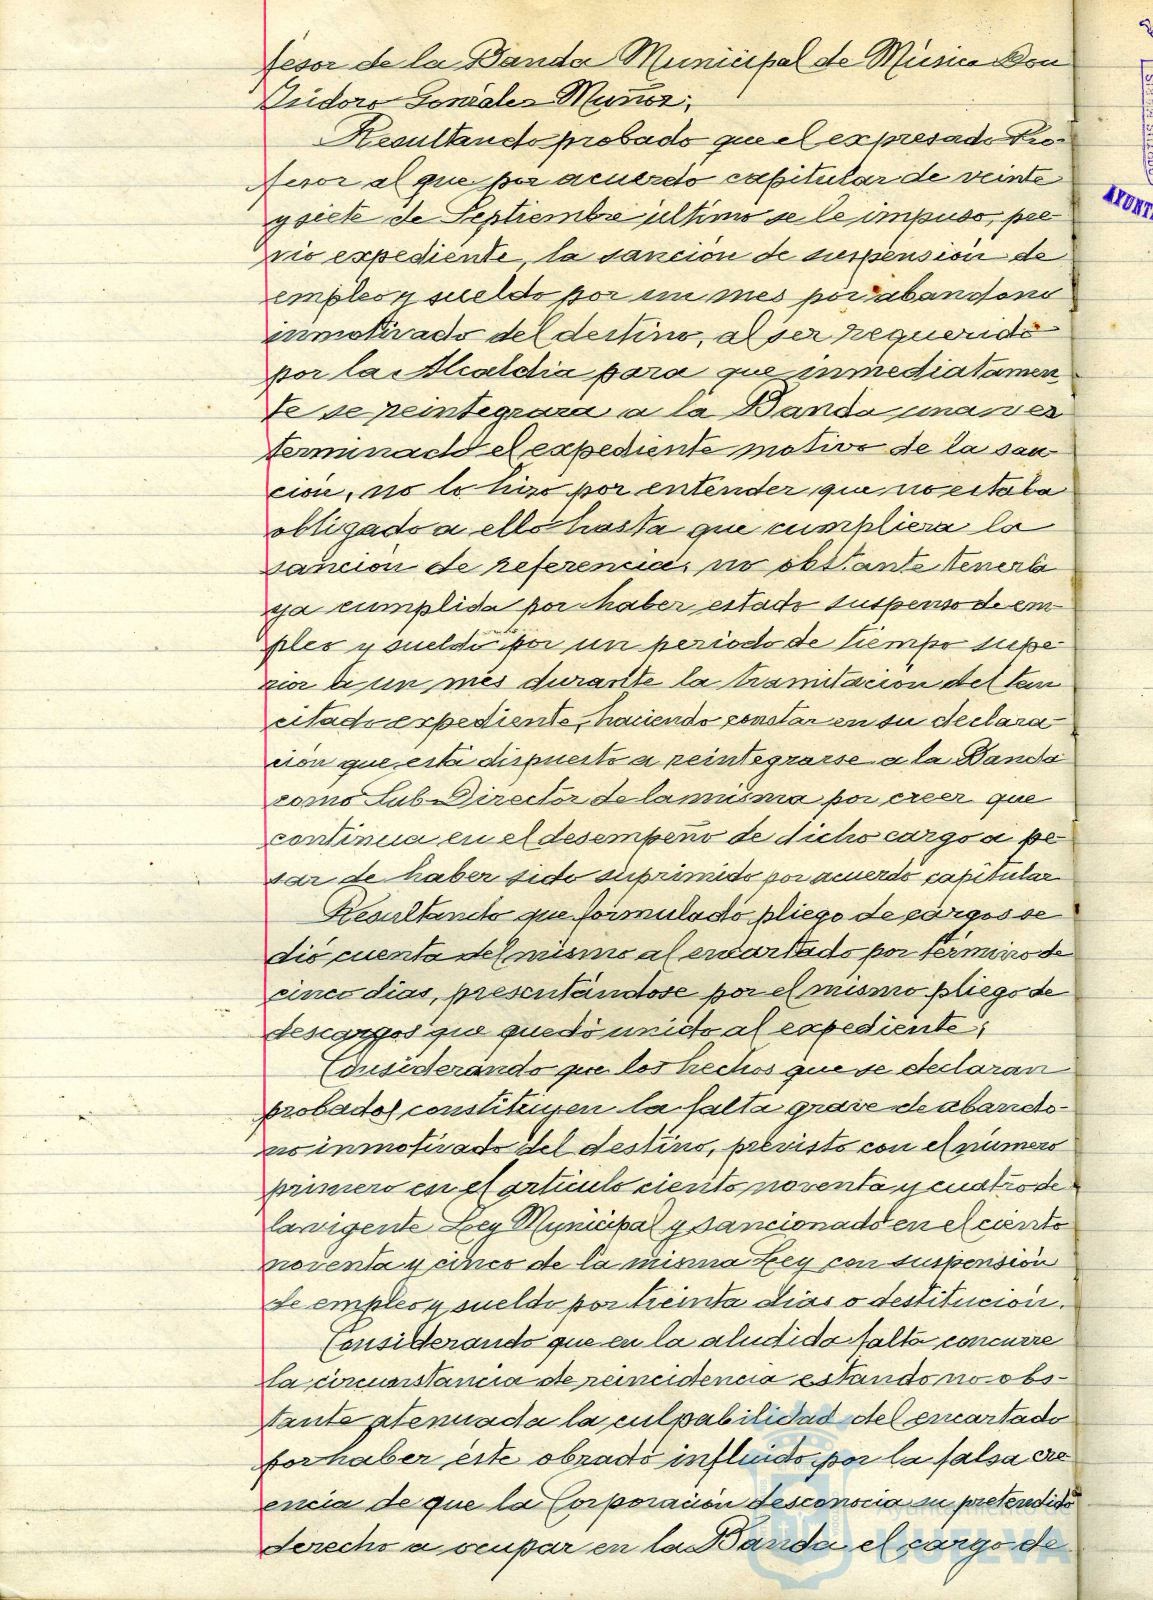 fesor de la Banda Municipal de Música Don
Isidoro González Muñoz;
Resultando probado que el expresado Pro-
fesor al que por acuerdo capitular de veinte
y siete de Septiembre último se le impuso, pre-
vio expediente, la sanción de suspensión de
empleo y sueldo por un mes por abandono
inmotivado del destino, al ser requerido
por la Alcaldia para que inmediatamen
te se reintegrara a la Banda una vez
terminado el expediente motivo de la san-
ción, no lo hizo por entender que no estaba
obligado a ello hasta que cumpliera la
sanción de referencia, no obstante tenerla
ya cumplida por haber estado suspenso de em-
pleo y sueldo por un periodo de tiempo supe-
rior a un mes durante la tramitación del tan
citado expediente, haciendo constar en su declara-
ción que está dispuesto a reintegrarse a la Banda
como Sub-Director de la misma por creer que
continua en el desempeño de dicho cargo a pe-
sar de haber sido suprimido por acuerdo capitular
Resultando que formulado pliego de cargos se
dió cuenta del mismo al encartado por término de
cinco dias, presentándose por el mismo pliego de
descargos que quedó unido al expediente;
Considerando que los hechos que se declaran
probados constituyen la falta grave de abando-
no inmotivado del destino, previsto con el número
primero en el artículo ciento noventa y cuatro de
la vigente Ley Municipal y sancionado en el ciento
noventa y cinco de la misma Ley con suspensión
de empleo y sueldo por treinta dias o destitución.
Considerando que en la aludida falta concurre
la circunstancia de reincidencia estando no obs-
tante atenuada la culpabilidad del encartado
por haber éste obrado influido por la falsa cre
encia de que la Corporación desconocia su pretendido
derecho a ocupar en la Banda el cargo de
Ayuntamiento de
HUELVA